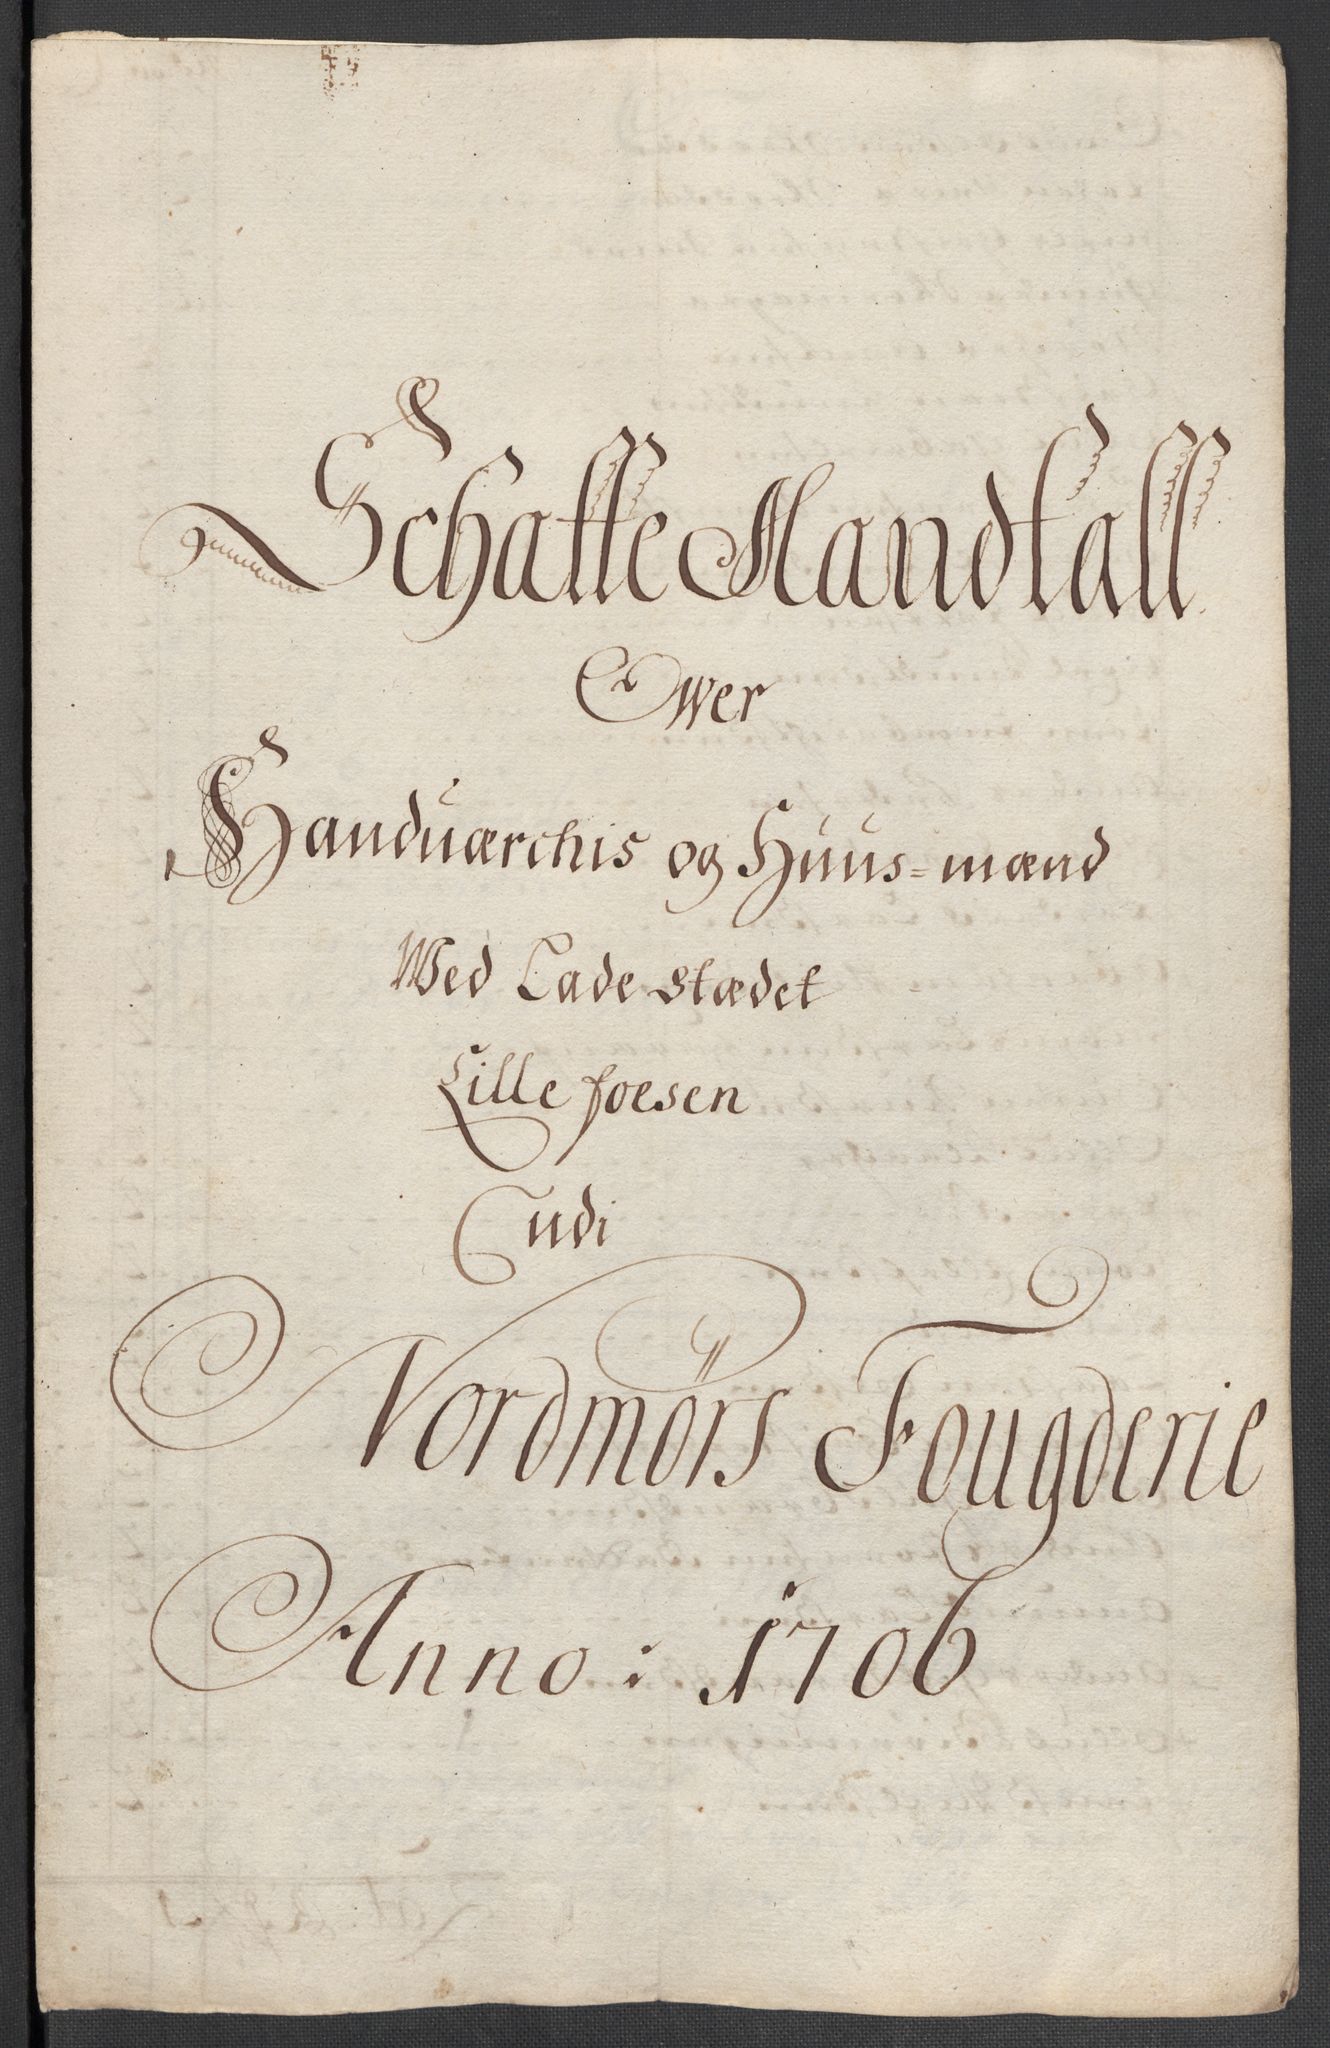 Schatte Mandtall
Ower
Handuærchis og Huus=mænd
Wed Lade stædet
Lille foesen
Udi
Nordmörs Fougderie
Anno: 1706